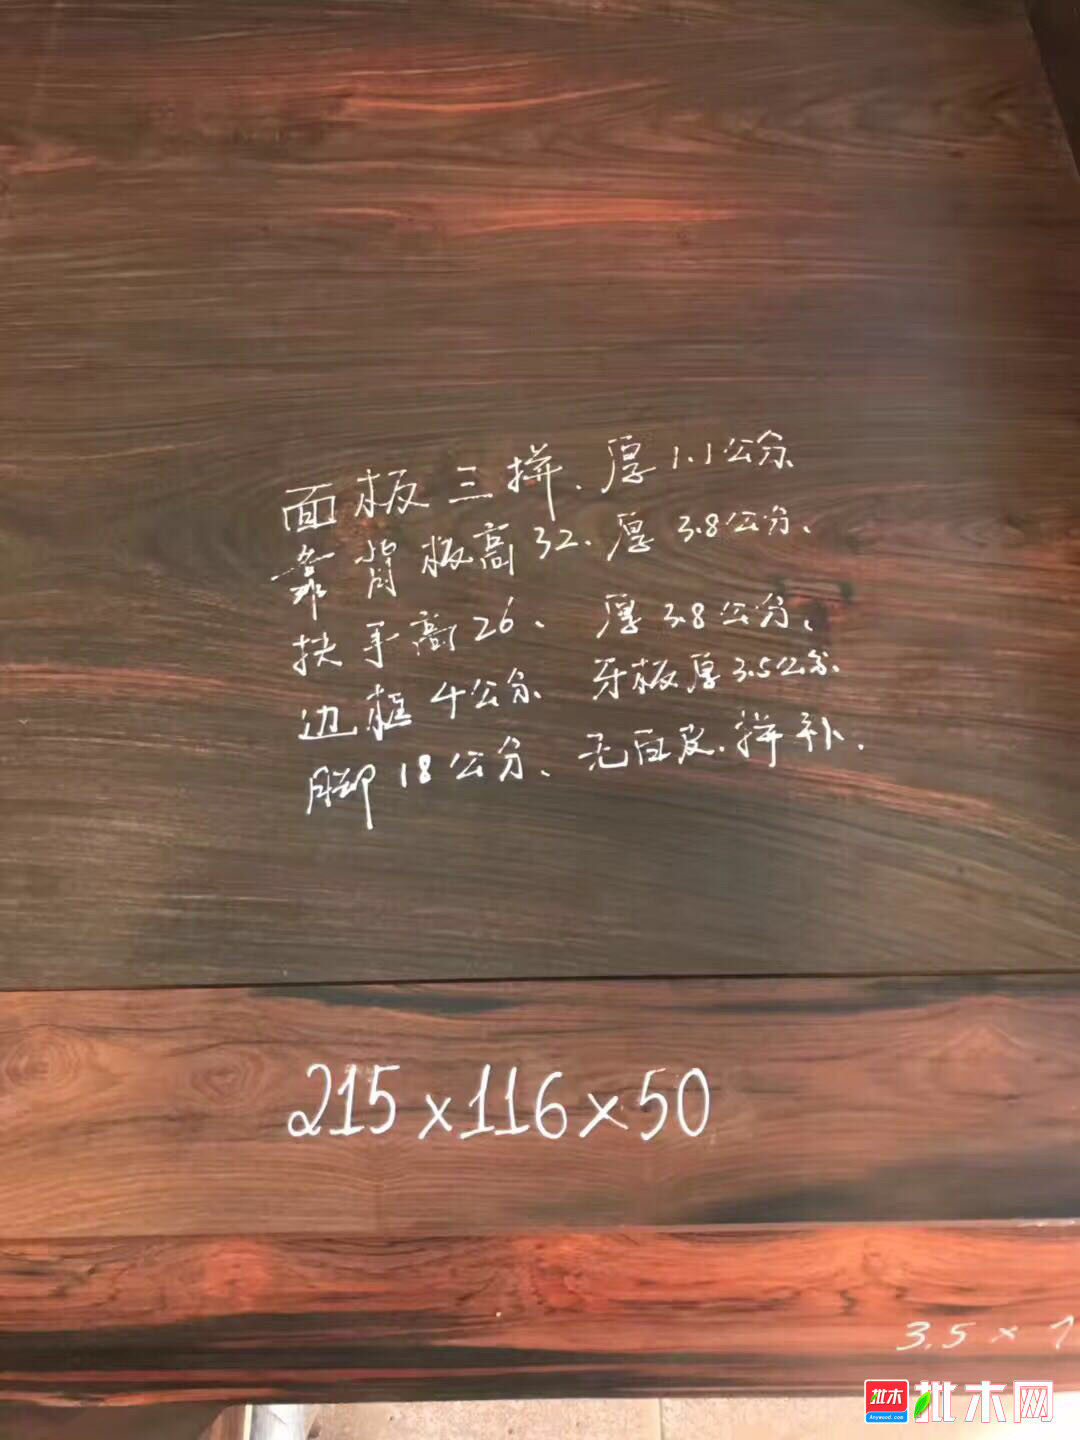 面板三拼、厚1.1公分
靠背板高32、厚3.8公分、
扶手高26、厚3.8公分、
边框4公分 牙板厚3.5公分、
脚18公分、无白皮、拼补.
215×116×50
3.5×1
批木
Anywood.com
批木网